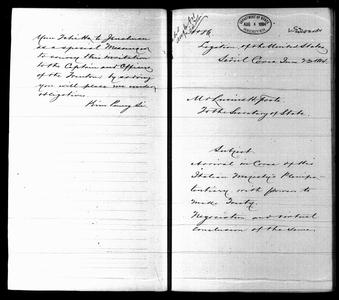 as a special Messenger
to convey this invitation
to the Captain and Officers
of the Trenton by so doing
you will place me under
obligations
DEPARTMENT OF STATE
AUG 4 1884
RECEIVED
Legation of the United States
Seoul Corea June 23 1884
Mr Lucius H. Foote
To the Secretary of State.
Subject
Arrival in Corea of His
Italian Majesty's Plenipo-
tentiary with power to
make Treaty.
Negociation and
conclusion of the same.